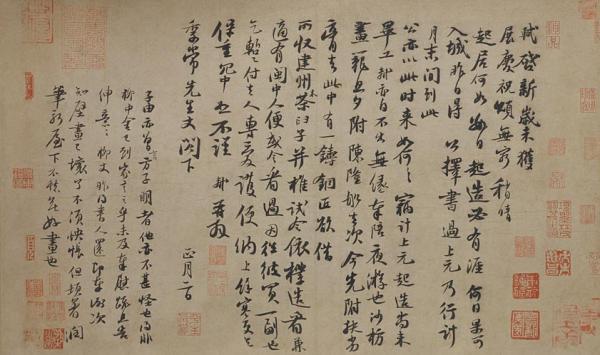 軾啟新歲未獲
展慶祝頌無窮稍晴
起居何如數日起造必有涯何日果可
入城昨日得公擇書過上元乃行計
月末間到此
公亦以此時來如何〻竊計上元起造尚未
畢工軾亦自不出無緣奉陪夜游也沙枋
畫籠旦夕附陳隆船去次今先附扶劣
膏去此中有一鑄銅匠欲借
所收建州木茶臼子并椎試令依樣造看兼
適有閩中人便或令看過因往彼買一副也
乞暫付去人專愛護便納上餘寒更乞
保重冗中恕不謹 軾再拜
季常先生丈閣下
正月二日
子由亦曾言方子明者他亦不甚怪也得非
柳中舍已到家言之乎未及奉慰疏且告
伸意〻柳丈昨得書人還即奉謝次
知壁畫已壞了不須怏悵但頓著潤
筆新屋下不愁無好畫也